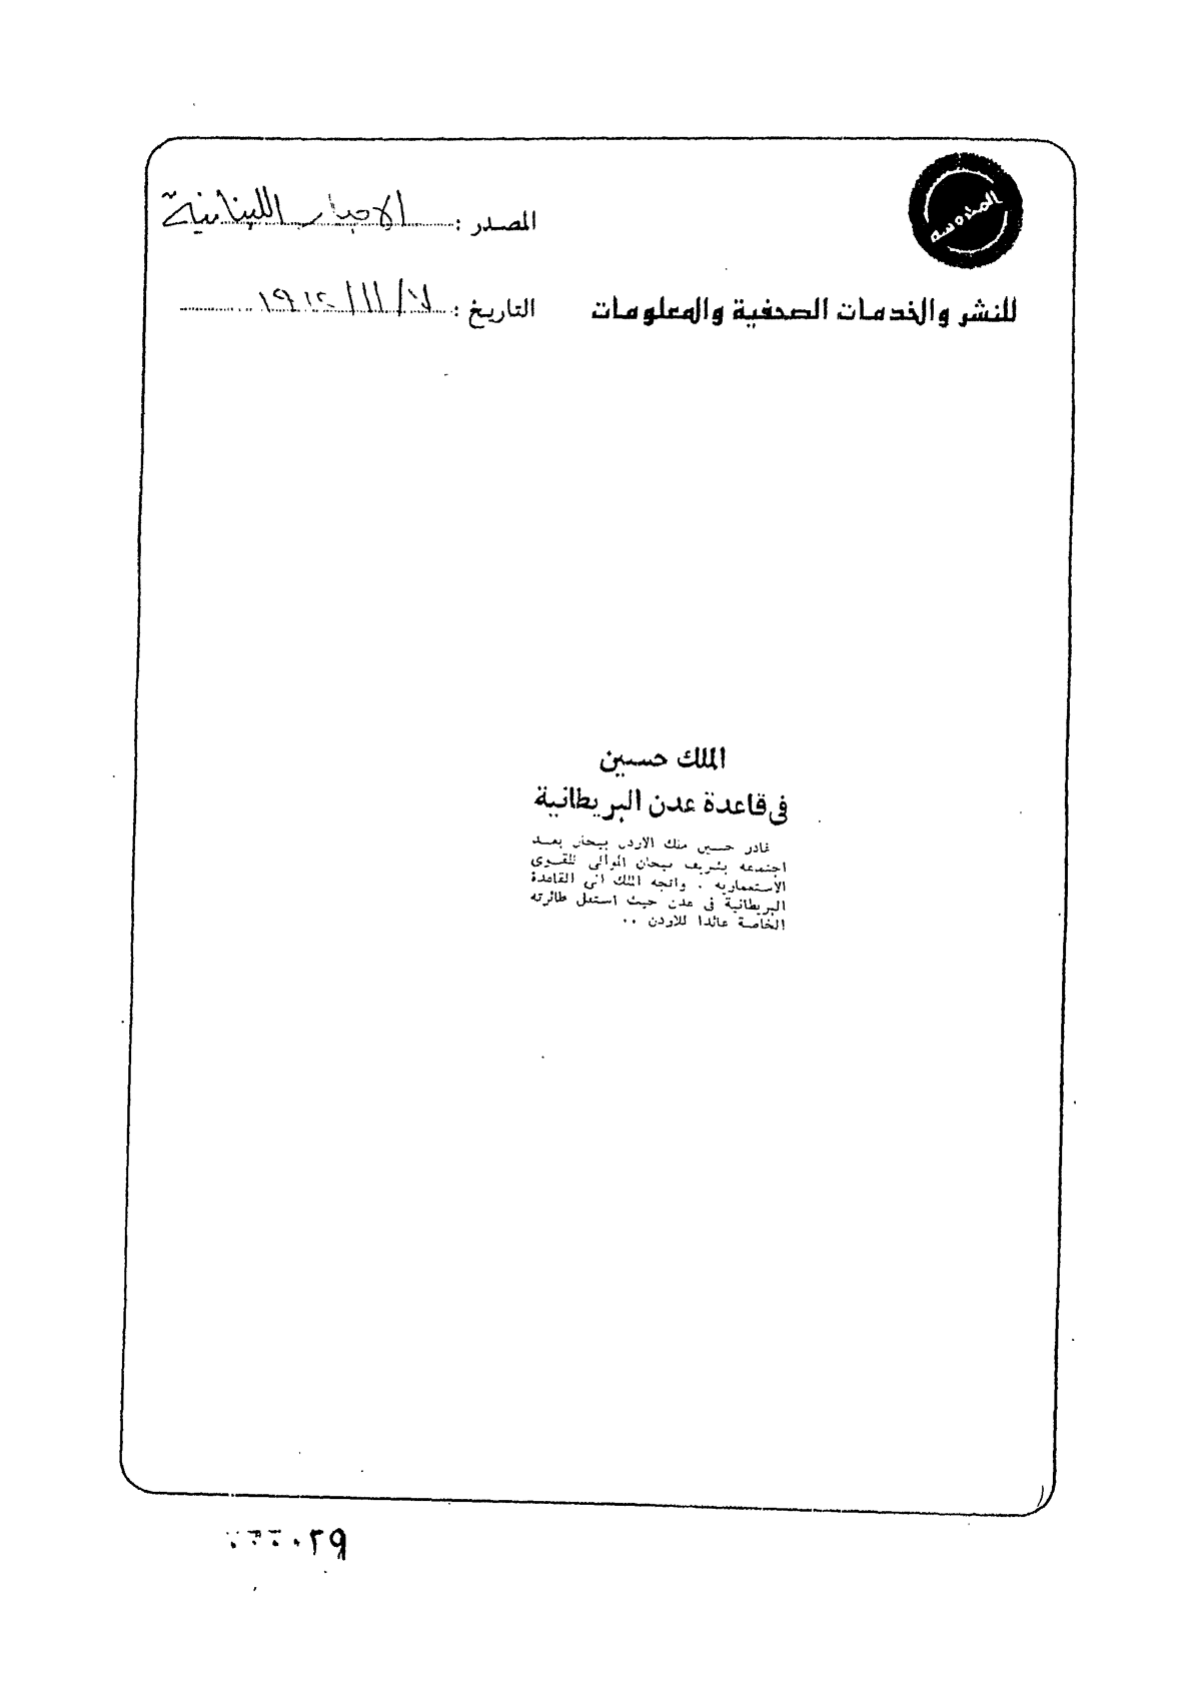 المحروسه
المصدر : الاخبار اللبنانية
للنشر والخدمات الصحفية والمعلومات
التاريخ : ١١/
الملك حسين
فى قاعدة عدن البريطانية
غادر حسين ملك الاردن بيحان بعد
اجتماعه بشريف بيحان الموالى للقوى
الاستعمارية . واتجه الملك الى القاعدة
البريطانية فى عدن حيث استقل طائرته
الخاصة عائدا للاردن ..